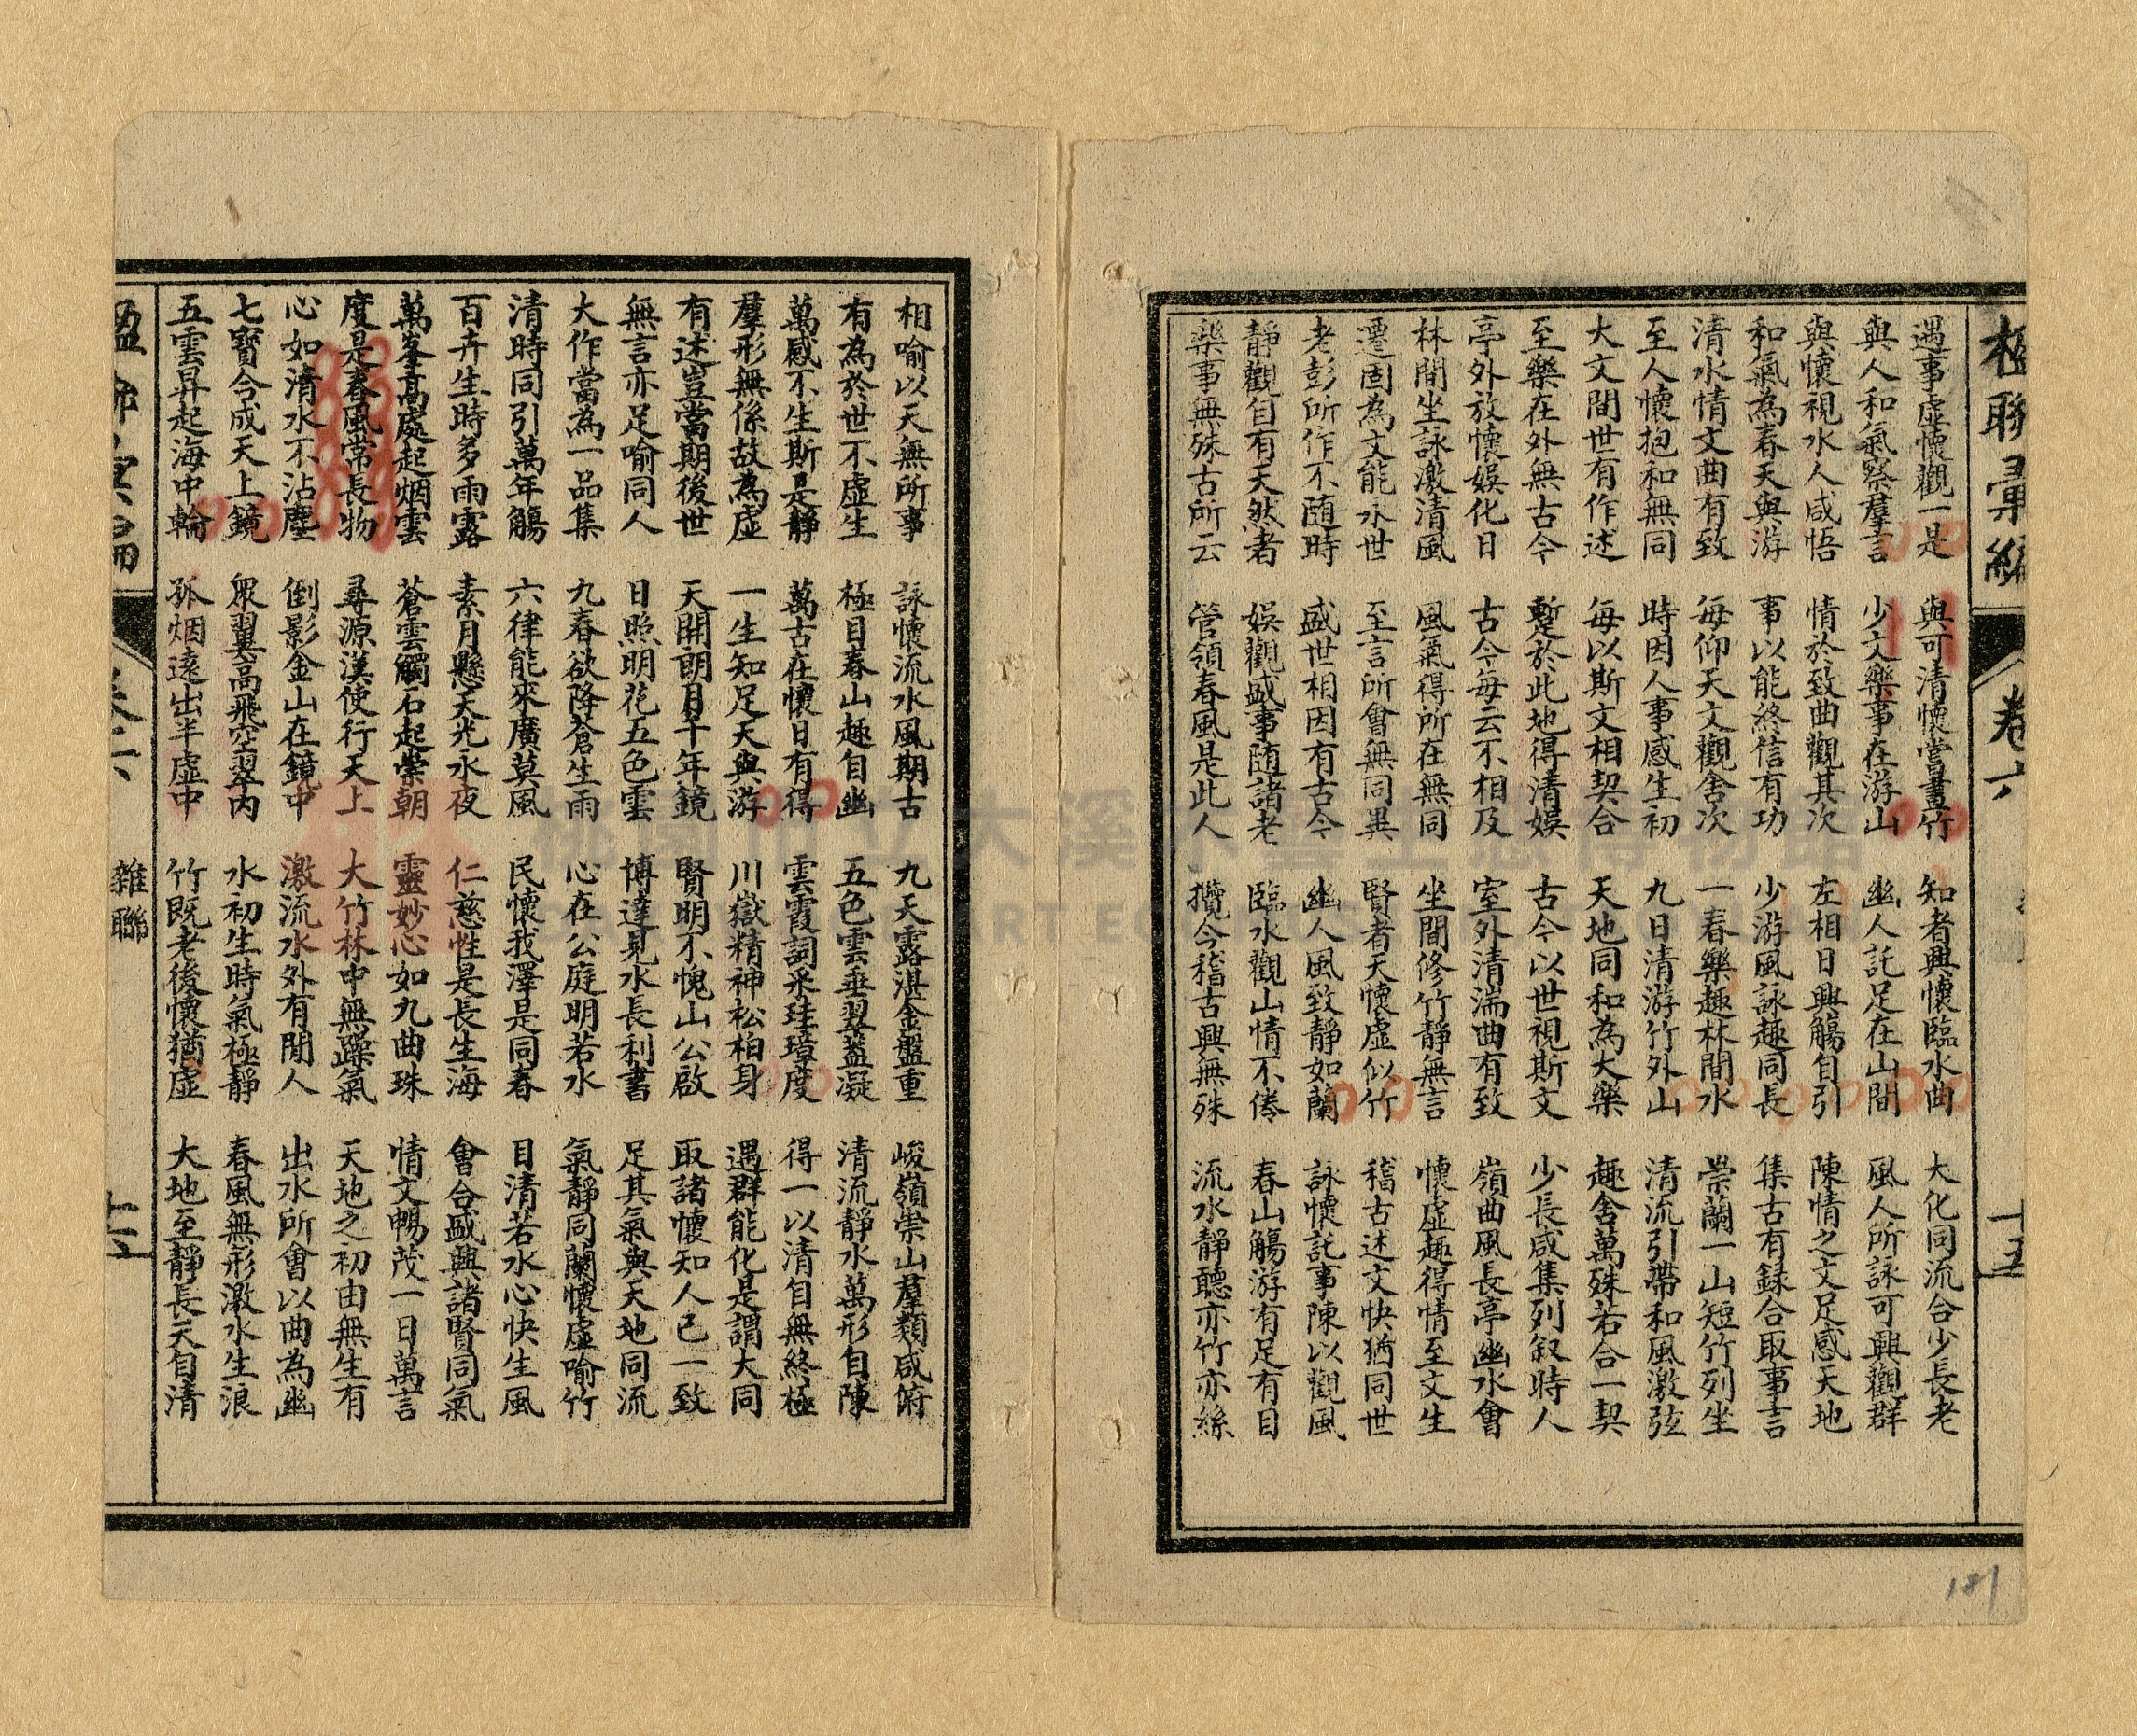 楹聯彙編 卷六 十五
遇事虛懷觀一是 與可清懷嘗畫竹 知者興懷臨水曲 大化同流合少長老
與人和氣察羣言 少文樂事在游山 幽人託足在山間 風人所詠可興觀群
與懷視水人咸悟 情於致曲觀其次 左相日興觴自引 陳情之文足感天地
和氣為春天與游 事以能終信有功 少游風詠趣同長 集古有録合取事言
清水情文曲有致 每仰天文觀舍次 一春樂趣林間水 崇蘭一山短竹列坐
至人懷抱和無同 時因人事感生初 九日清游竹外山 清流引帶和風激弦
大文間世有作述 每以斯文相契合 天地同和為大樂 趣舍萬殊若合一契
至樂在外無古今 蹔於此地得清娛 古今以世視斯文 少長咸集列叙時人
亭外放懷娛化日 古今每云不相及 室外清湍曲有致 嶺曲風長亭幽水會
林間坐詠激清風 風氣得所在無同 坐間修竹靜無言 懷虛趣得情至文生
遷固為文能永世 至言所會無同異 賢者天懷虛似竹 稽古述文快猶同世
老彭所作不随時 盛世相因有古今 幽人風致靜如蘭 詠懷託事陳以觀風
靜觀自有天然者 娛觀盛事随諸老 臨水觀山情不倦 春山觴游有足有目
樂事無殊古所云 管領春風是此人 攬今稽古興無殊 流水靜聽亦竹亦絲
相喻以天無所事 詠懷流水風期古 九天露湛金盤重 峻嶺崇山羣類咸俯
有為於世不虛生 極目春山趣自幽 五色雲垂翠蓋凝 清流靜水萬形自陳
萬感不生斯是靜 萬古在懷日有得 雲霞詞采珪璋度 得一以清自無終極
羣形無係故為虛 一生知足天與游 川嶽精神松柏身 遇群能化是謂大同
有述豈當期後世 天開朗月千年鏡 賢明不愧山公啟 取諸懷知人己一致
無言亦足喻同人 日照明花五色雲 博達見水長利書 足其氣與天地同流
大作當為一品集 九春欲降蒼生雨 心在公庭明若水 氣靜同蘭懷虛喻竹
清時同引萬年觴 六律能來廣莫風 民懷我澤是同春 目清若水心快生風
百卉生時多雨露 素月懸天光永夜 仁慈性是長生海 會合盛興諸賢同氣
萬峯高處起烟雲 蒼雲觸石起崇朝 靈妙心如九曲珠 情文暢茂一日萬言
度是春風常長物 尋源漢使行天上 大竹林中無躁氣 天地之初由無生有
心如清水不沾塵 倒影金山在鏡中 激流水外有閒人 出水所會以曲為幽
七寶合成天上鏡 衆翼高飛空翠內 水初生時氣極靜 春風無形激水生浪
五雲昇起海中輪 孤烟遠出半虛中 竹既老後懷猶虛 大地至靜長天自清
雜聯
181